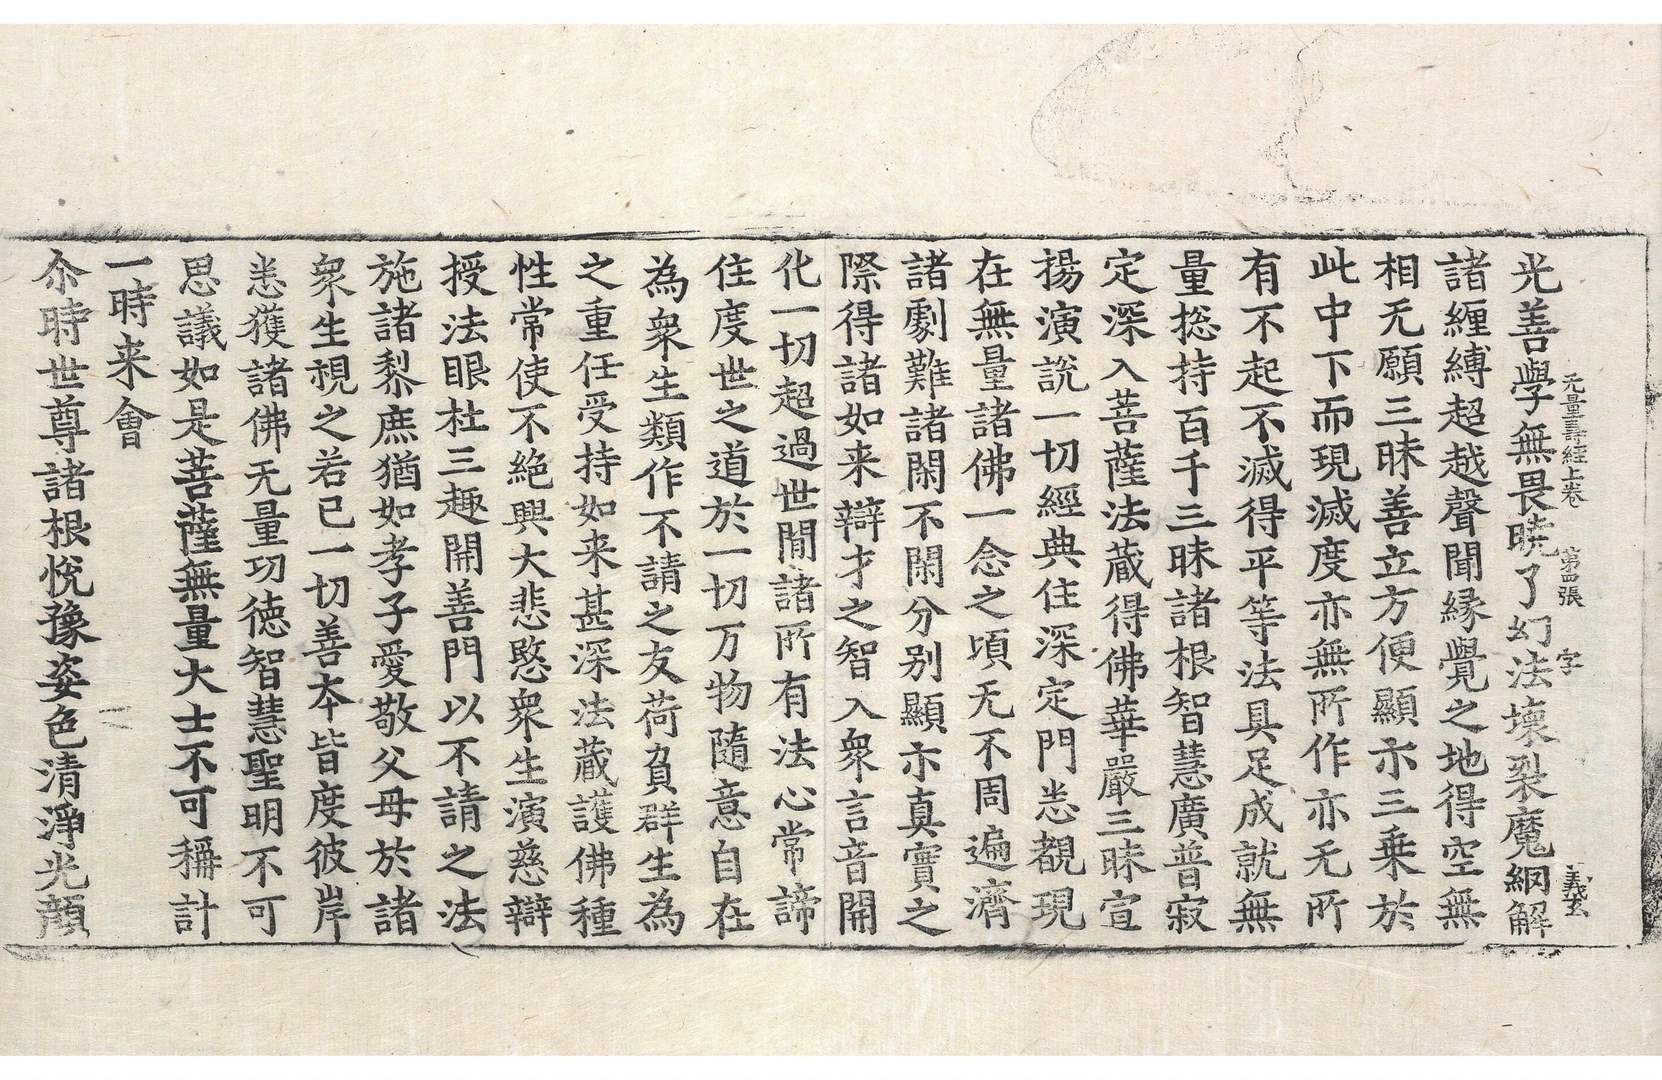 无量壽經上卷 第四張 字 義玄
光善學無畏曉了幻法壞裂魔網解
諸纒縛超越聲聞緣覺之地得空無
相无願三昧善立方便顯示三乗於
此中下而現滅度亦無所作亦无所
有不起不滅得平等法具足成就無
量揔持百千三昧諸根智慧廣普寂
定深入菩薩法蔵得佛華嚴三昧宣
揚演說一切經典住深定門悉覩現
在無量諸佛一念之頃无不周遍濟
諸劇難諸閑不閑分別顯示真實之
際得諸如来辯才之智入衆言音開
化一切超過世閒諸所有法心常諦
住度世之道於一切万物隨意自在
為衆生類作不請之友荷負群生為
之重任受持如来甚深法蔵護佛種
性常使不絕興大悲愍衆生演慈辯
授法眼杜三趣開善門以不請之法
施諸黎庶猶如孝子愛敬父母於諸
衆生視之若己一切善本皆度彼岸
悉獲諸佛无量功德智慧聖明不可
思議如是菩薩無量大士不可稱計
一時来會
尒時世尊諸根悅豫姿色清淨光顔